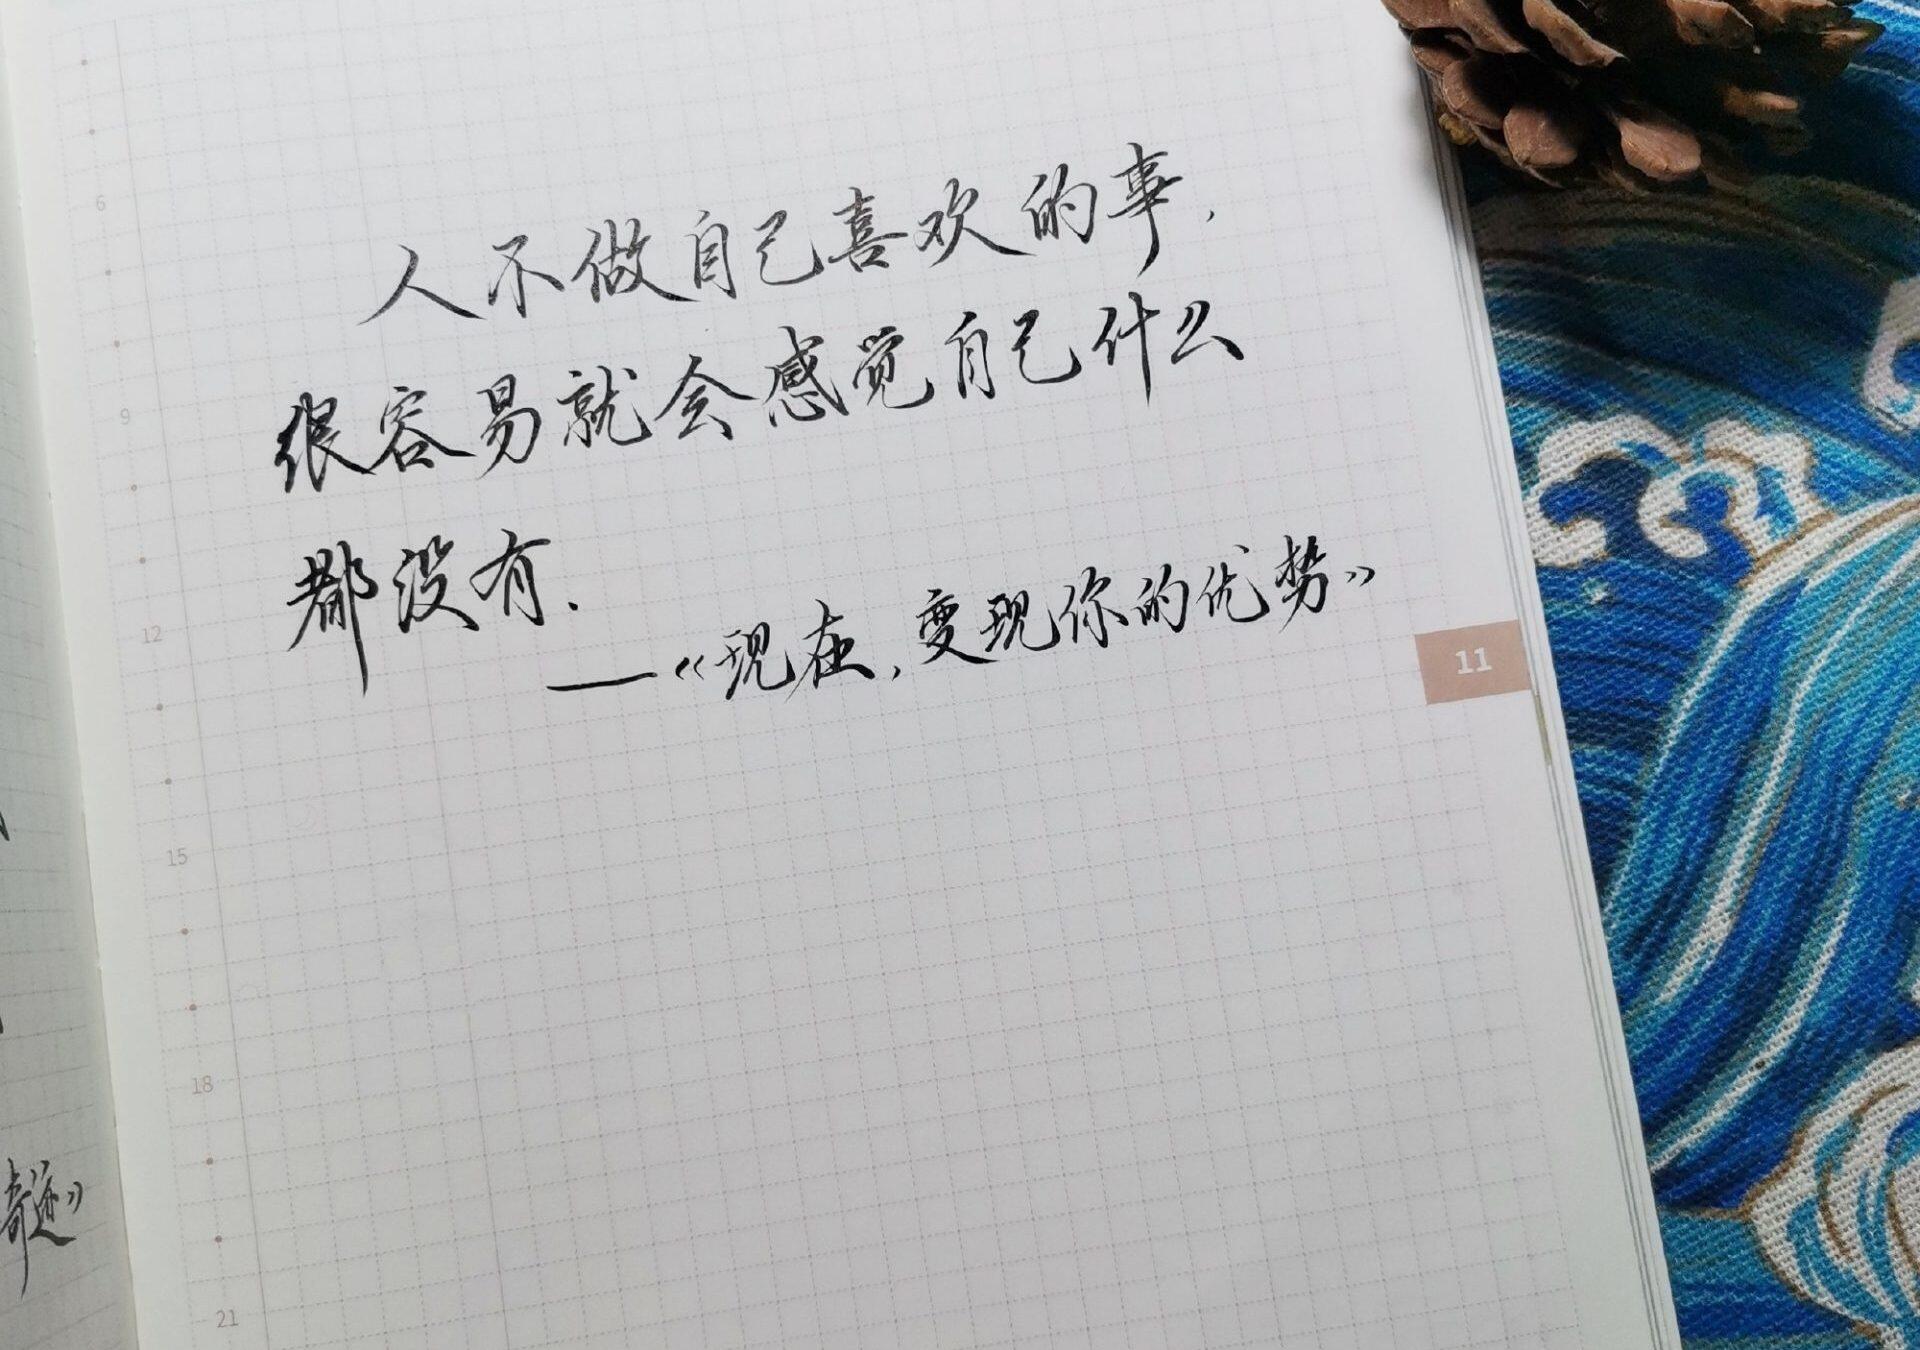 人不做自己喜欢的事,
很容易就会感觉自己什么
都没有.
——《现在,变现你的优势》
6
9
12
15
18
21
11
奇迹》